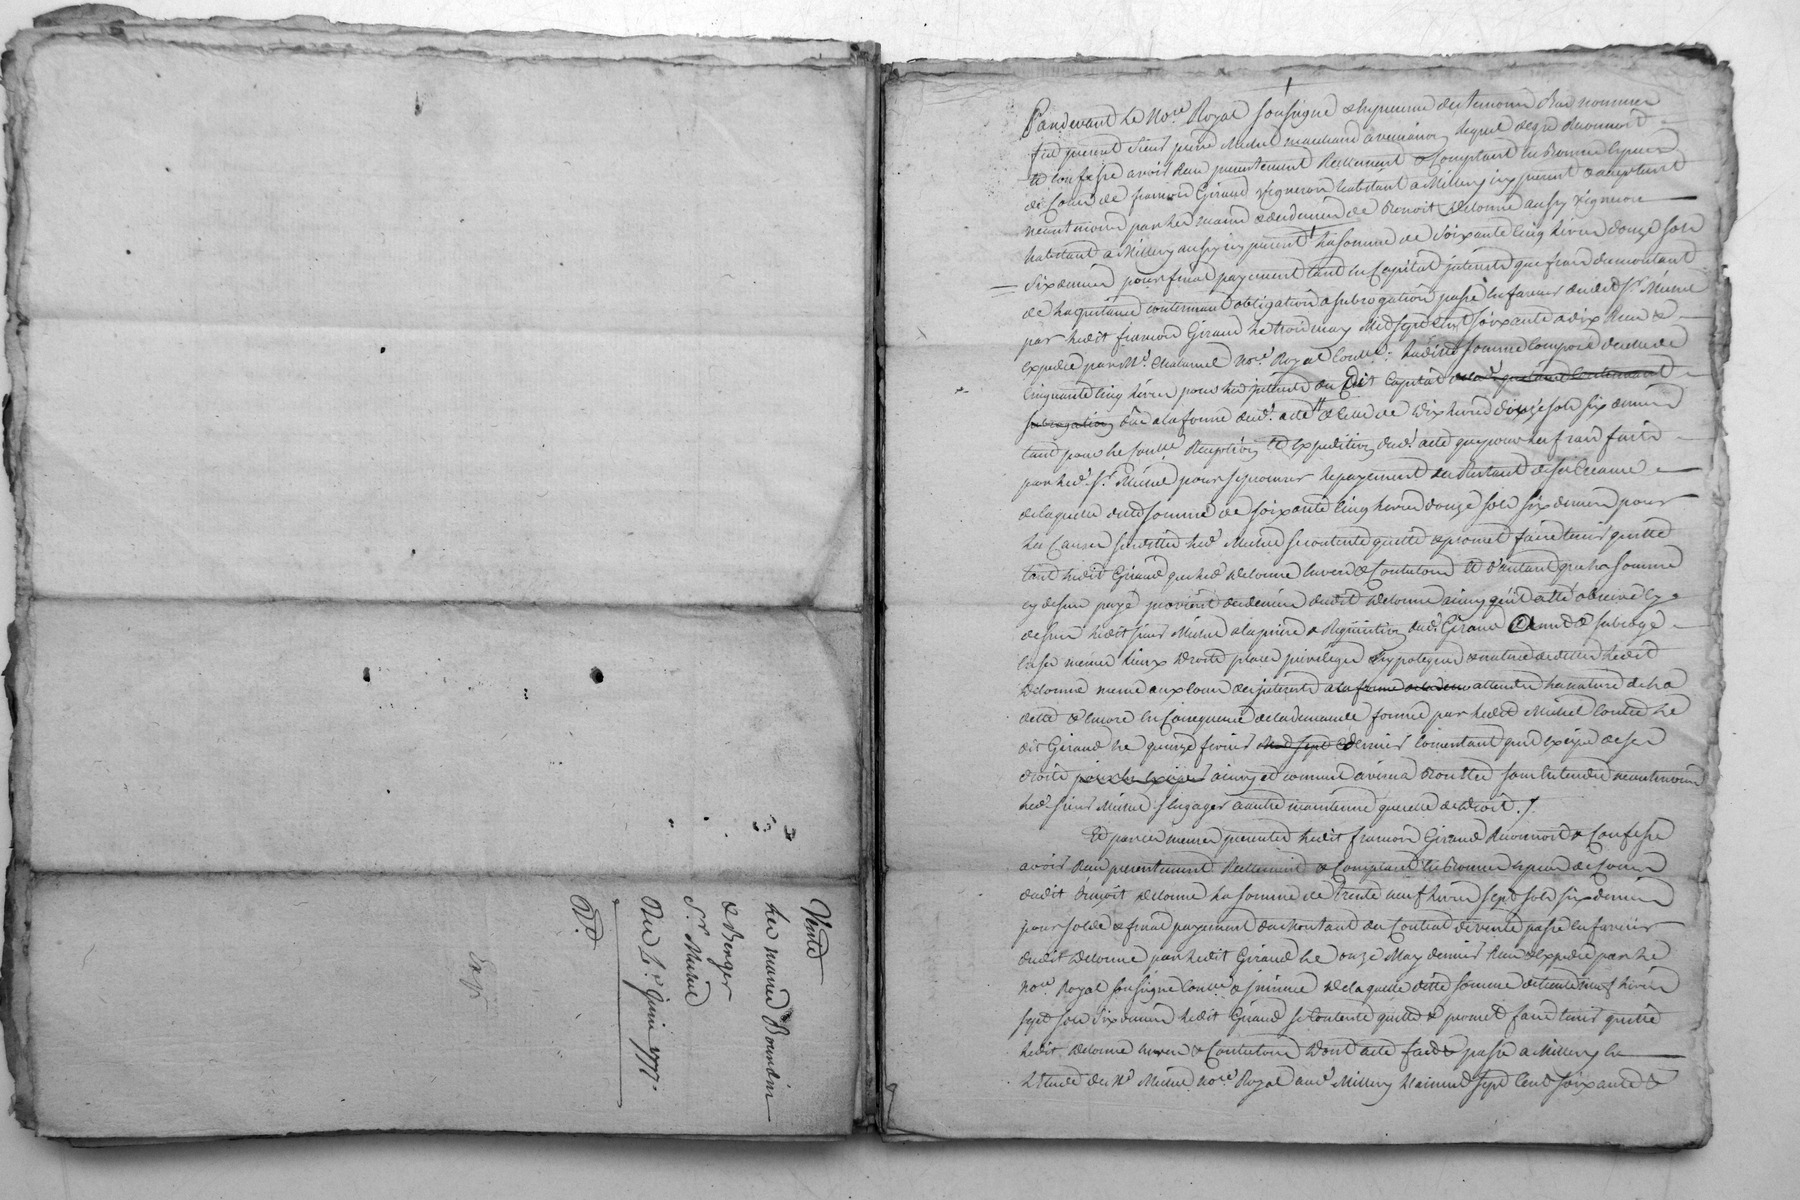 Vente
les mariés Bourdin
& Berger
Sr. Michel
Du 4e. juin 1777.
Exp.
Pardevant le Nore. Royal soussigné & en presence des temoins bas nommés
fut present sieur pierre Michel marchand a lequel de gré Reconnoit
et confesse avoir Recu presentement Reellement & Comptant en Bonnes Especes
de Cours de francois Giraud vigneron habitant a Millery icy present & acceptant
neantmoins par les mains & des deniers de Benoit Delorme aussy vigneron
habitant a Millery aussy icy present la somme de soixante Cinq livres douze sols
six deniers pour final payement tant en Capital interets que frais du montant
de la quittance contenant obligation & subrogation passé en faveur dudit Sr. Michel
par ledit francois Giraud le trois may Mil sept Cent soixante & dix Recue &
expediée par Me. Nore. Royal ladite somme Composée de celle de
Cinquante Cinq livres pour les interets du dit Capital de la quittance Contenant
subrogation dûe a la forme dud. acte & celle de Dix livres douze sols six deniers
tant pour le Reception et Expedition dud. acte que pour les frais faits
par led. Sr. Michel pour se procurer le payement du Restant de sa Creance
de laquelle ditte somme de soixante Cinq livres douze sols six deniers pour
les Causes susdittes led. Michel se contente quitte & promet faire tenir quitte
tant ledit Giraud que led. Delorme envers & Contre tous et d'autant que la somme
cy dessus payé provient des deniers dudit Delorme ainsy qu'il a été observé cy
dessus ledit sieur Michel a la priere & Requisition dud. Giraud a mis & subrogé
en ses memes lieux Droits places privileges & hypoteques & nature de dettes ledit
Delorme meme aux Cours des interets a la forme attendu la nature de la
dette & encore en Consequence de la demande formée par ledit Michel Contre le
dit Giraud le quinze fevrier Mil sept dernier Consentant qu'il exerce de ses
droits pour les exiger ainsy et comme avisera Bon Etre sans Entendre neantmoins
led. sieur Michel s'engager a autre maintenue que celle de Droit ./.
Et par ces memes presentes ledit francois Giraud Reconnoit & Confesse
avoir Recu presentement Reellement & Comptant en Bonnes especes de Cours
dudit Benoit Delorme la somme de trente neuf livres sept sols six deniers
pour solde & final payement du Montant du Contrat de vente passé en faveur
dudit Delorme par ledit Giraud le onze May dernier Recu & Expedié par le
Nore. Royal soussigné & de laquelle ditte somme de trente neuf livres
sept sols six deniers ledit Giraud se Contente quitte & promet faire tenir quitte
ledit Delorme envers & Contre tous Dont acte fait & passé a Millery en
l'etude de Me. Michel nore. Royal aud. Millery L'an mil sept Cent soixante &